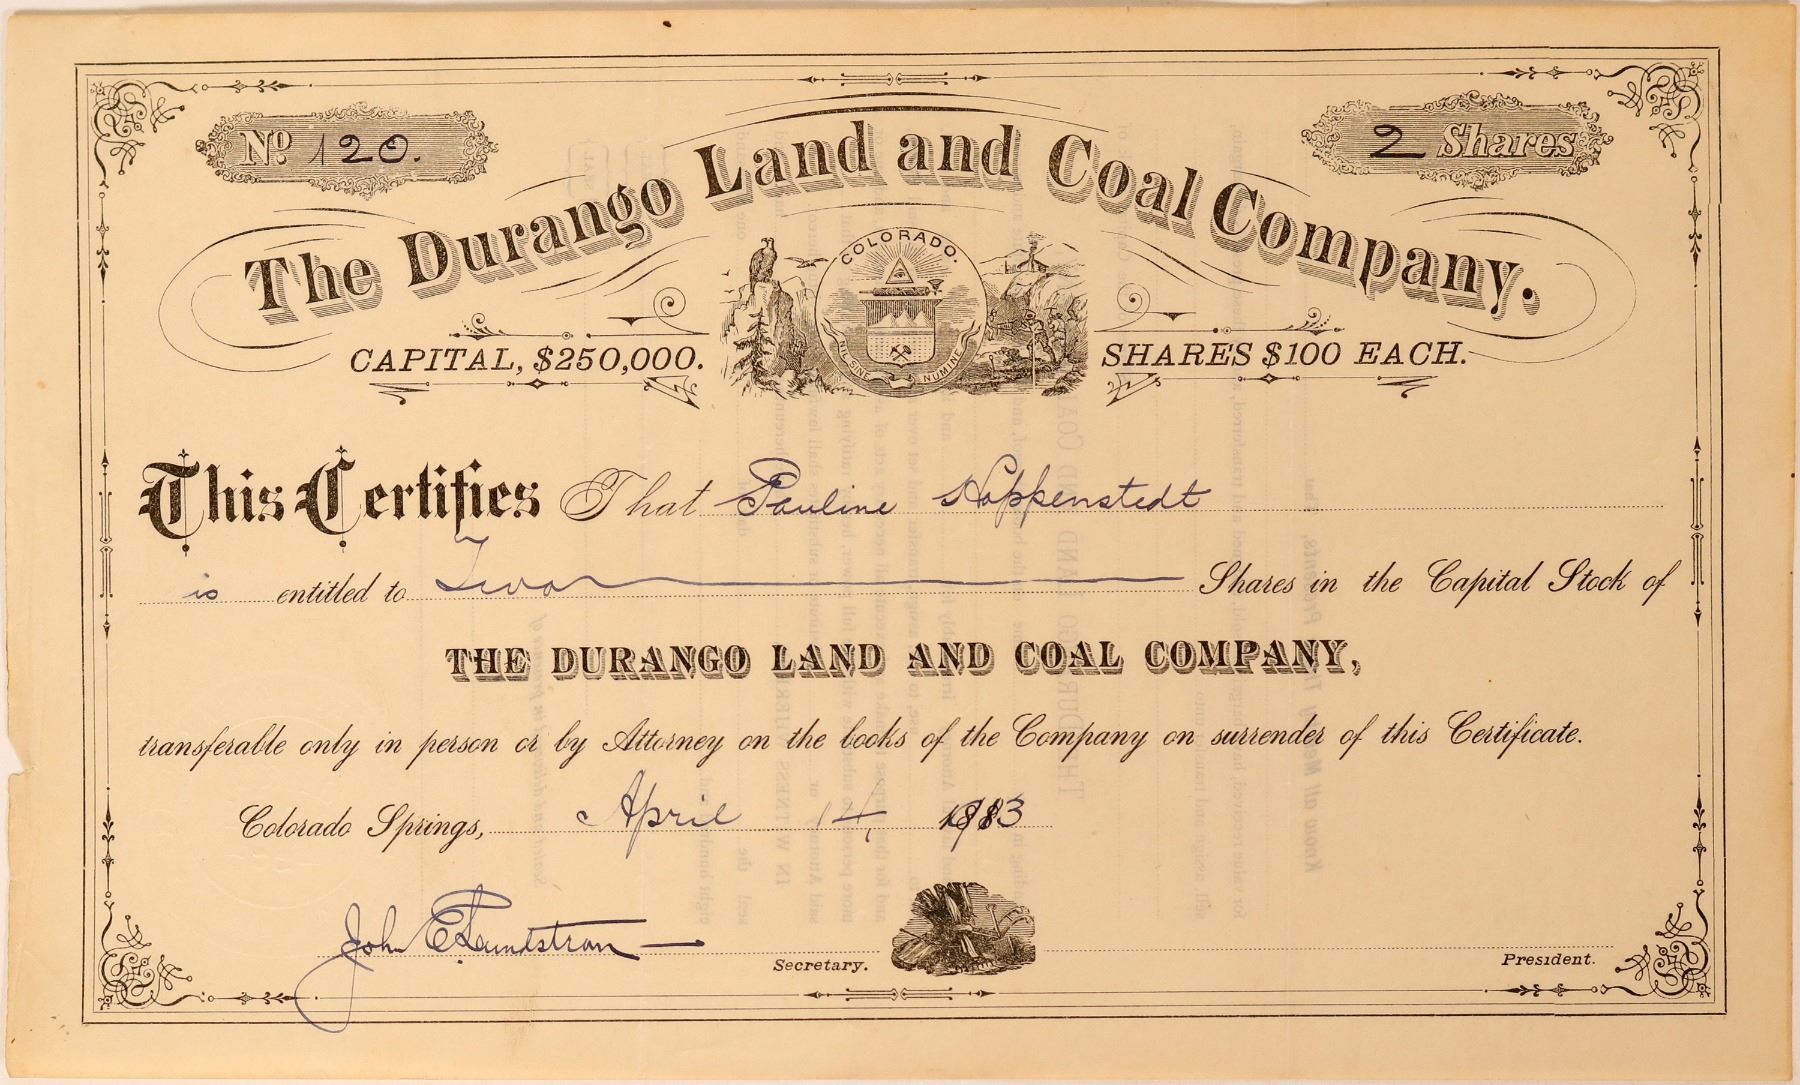 No. 120.
2 Shares
The Durango Land and Coal Company.
COLORADO.
NIL SINE NUMINE
CAPITAL, $250,000.
SHARES $100 EACH.
This Certifies That Pauline Hoppenstedt
is entitled to Two Shares in the Capital Stock of
THE DURANGO LAND AND COAL COMPANY,
transferable only in person or by Attorney on the books of the Company on surrender of this Certificate.
Colorado Springs, April 14,
John E. Lundstrom
Secretary.
President.